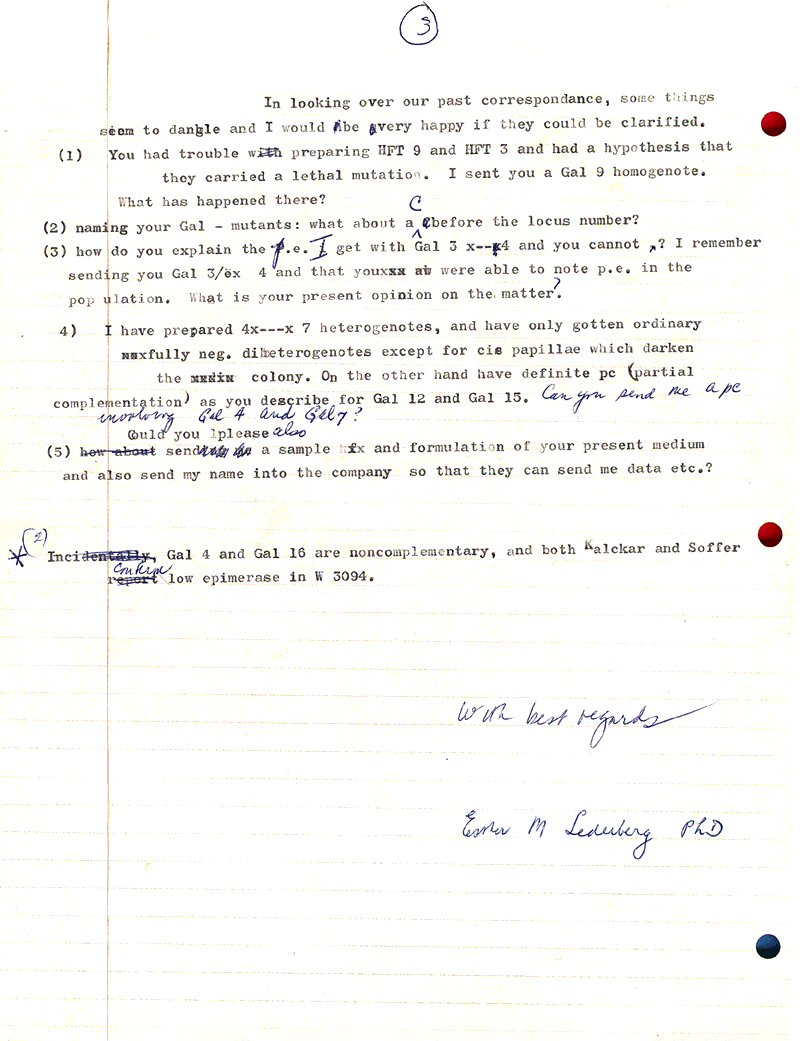 3
In looking over our past correspondance, some things
seem to dangle and I would be very happy if they could be clarified.
(1) You had trouble with preparing HFT 9 and HFT 3 and had a hypothesis that
they carried a lethal mutation. I sent you a Gal 9 homogenote.
What has happened there?
(2) naming your Gal - mutants: what about a C before the locus number?
(3) how do you explain the p.e. I get with Gal 3 x--4 and you cannot ? I remember
sending you Gal 3/ex 4 and that you were able to note p.e. in the
pop ulation. What is your present opinion on the matter?
4) I have prepared 4x---x 7 heterogenotes, and have only gotten ordinary
fully neg. diheterogenotes except for cis papillae which darken
the colony. On the other hand have definite pc (partial
complementation) as you describe for Gal 12 and Gal 15. Can you send me a pc
involving Gal 4 and Gal 7?
Could you please also
(5) how about send a sample and formulation of your present medium
and also send my name into the company so that they can send me data etc.?
(2)
Incidentally, Gal 4 and Gal 16 are noncomplementary, and both Kalckar and Soffer
confirm
report low epimerase in W 3094.
With best regards
Esther M Lederberg PhD